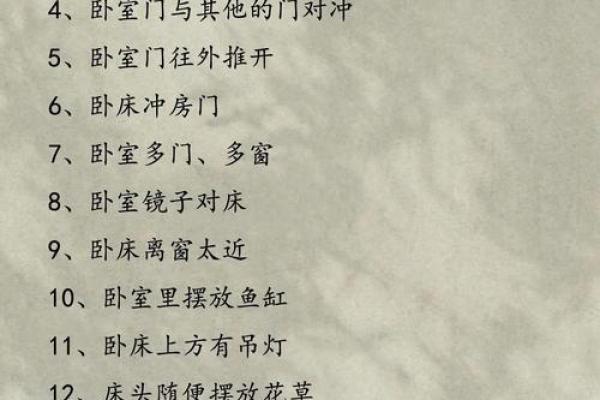 4、卧室门与其他的门对冲
5、卧室门往外推开
6、卧床冲房门
7、卧室多门、多窗
8、卧室镜子对床
9、卧床离窗太近
10、卧室里摆放鱼缸
11、卧床上方有吊灯
12、床头随便摆放花草